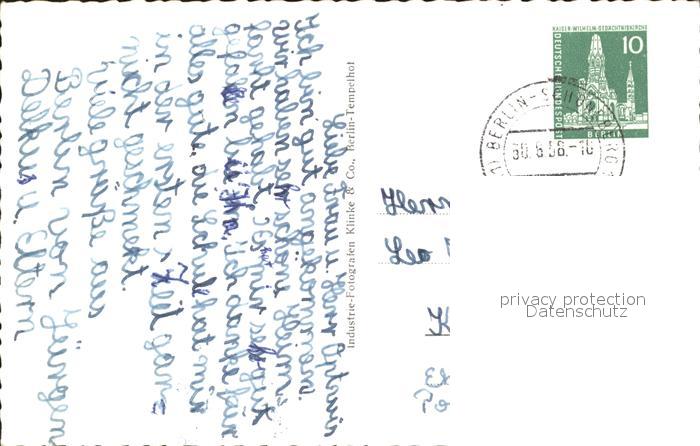 Liebe Frau u. Herr
Ich bin gut angekommen.
wir haben sehr schöne Heim-
fahrt gehabt. Es hat mir sehr gut
gefallen bei Ihnen. Ich danke für
alles gute, die Schule hat mir
in der ersten Zeit ganz
nicht geschmekt.
Viele grüße aus
Berlin von Jürgen
u. Eltern
Industrie-Fotografen Klinke & Co., Berlin-Tempelhof
KAISER-WILHELM-GEDÄCHTNISKIRCHE
10
DEUTSCHE BUNDESPOST
BERLIN
BERLIN-SCHÖNEBERG
30.8.56.-16
Herrn
Leo
K
privacy protection
Datenschutz